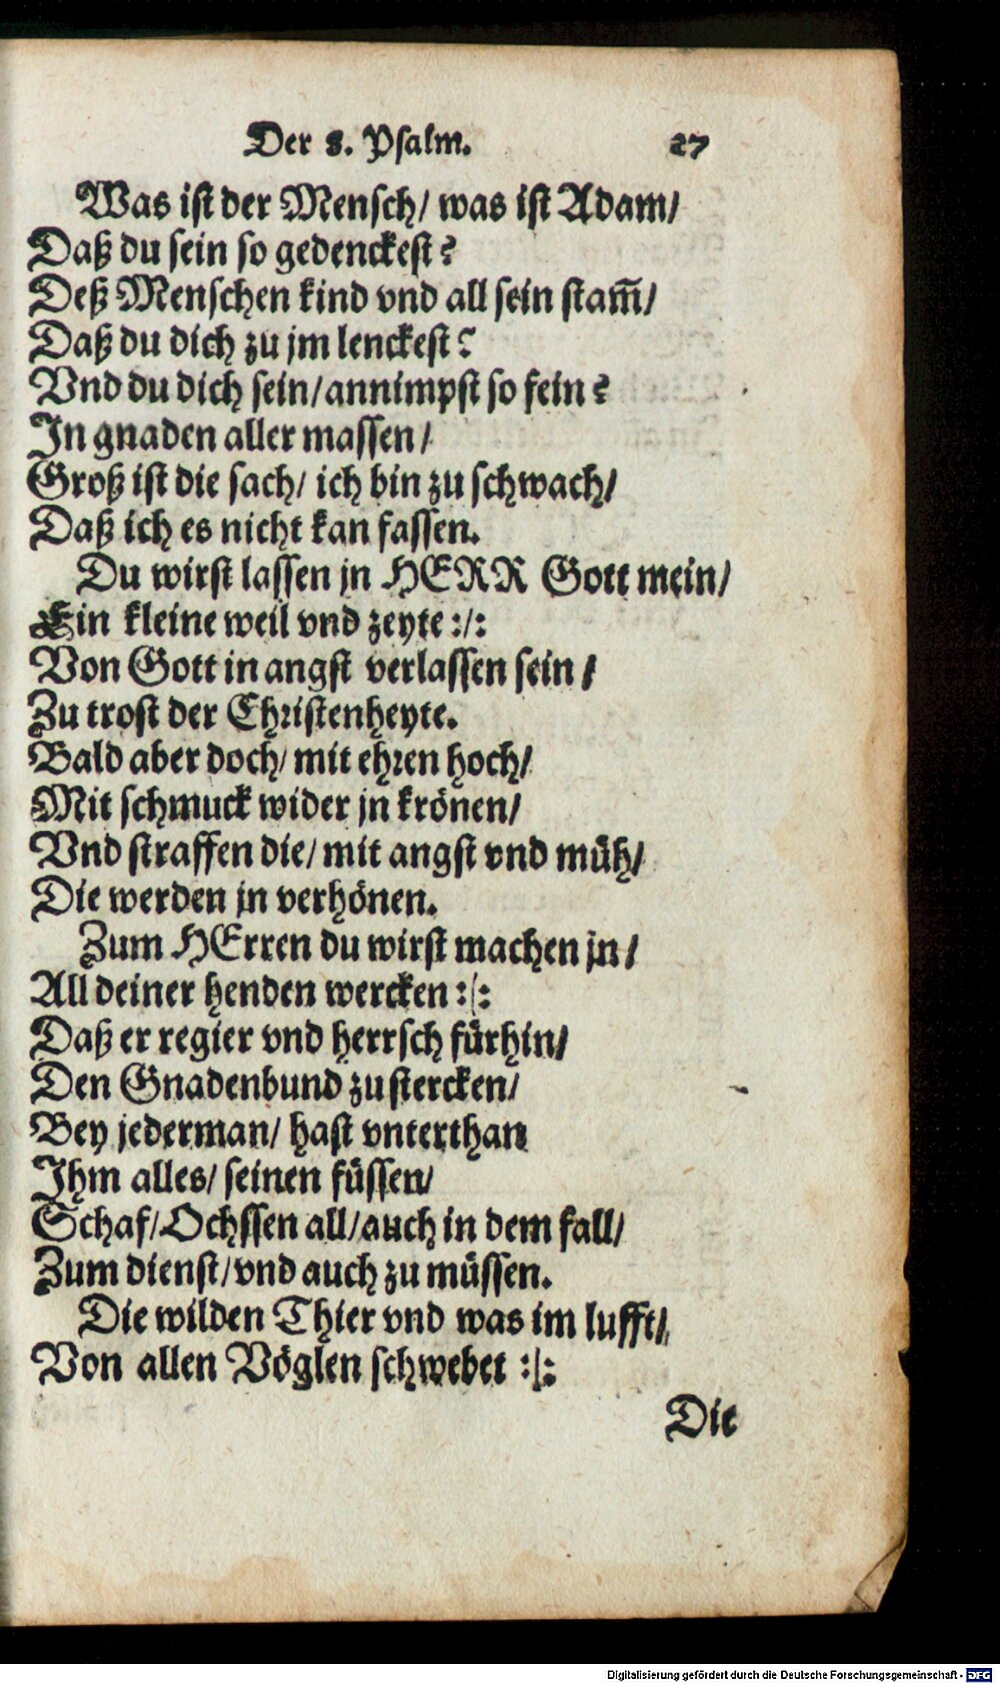 Der 8. Psalm. 27
Was ist der Mensch/ was ist Adam/
Daß du sein so gedenckest?
Deß Menschen kind vnd all sein stam̃/
Daß du dich zu jm lenckest?
Vnd du dich sein/ annimpst so fein?
In gnaden aller massen/
Groß ist die sach/ ich bin zu schwach/
Daß ich es nicht kan fassen.
Du wirst lassen jn HERR Gott mein/
Ein kleine weil vnd zeyte :/:
Von Gott in angst verlassen sein/
Zu trost der Christenheyte.
Bald aber doch/ mit ehren hoch/
Mit schmuck wider jn krönen/
Vnd straffen die/ mit angst vnd müh/
Die werden jn verhönen.
Zum HErren du wirst machen jn/
All deiner henden wercken :/:
Daß er regier vnd herrsch fürhin/
Den Gnadenbund zu stercken/
Bey jederman/ hast vnterthan
Ihm alles/ seinen füssen/
Schaf/ Ochssen all/ auch in dem fall/
Zum dienst/ vnd auch zu müssen.
Die wilden Thier vnd was im lufft/
Von allen Vöglen schwebet :/:
Die
Digitalisierung gefördert durch die Deutsche Forschungsgemeinschaft - DFG